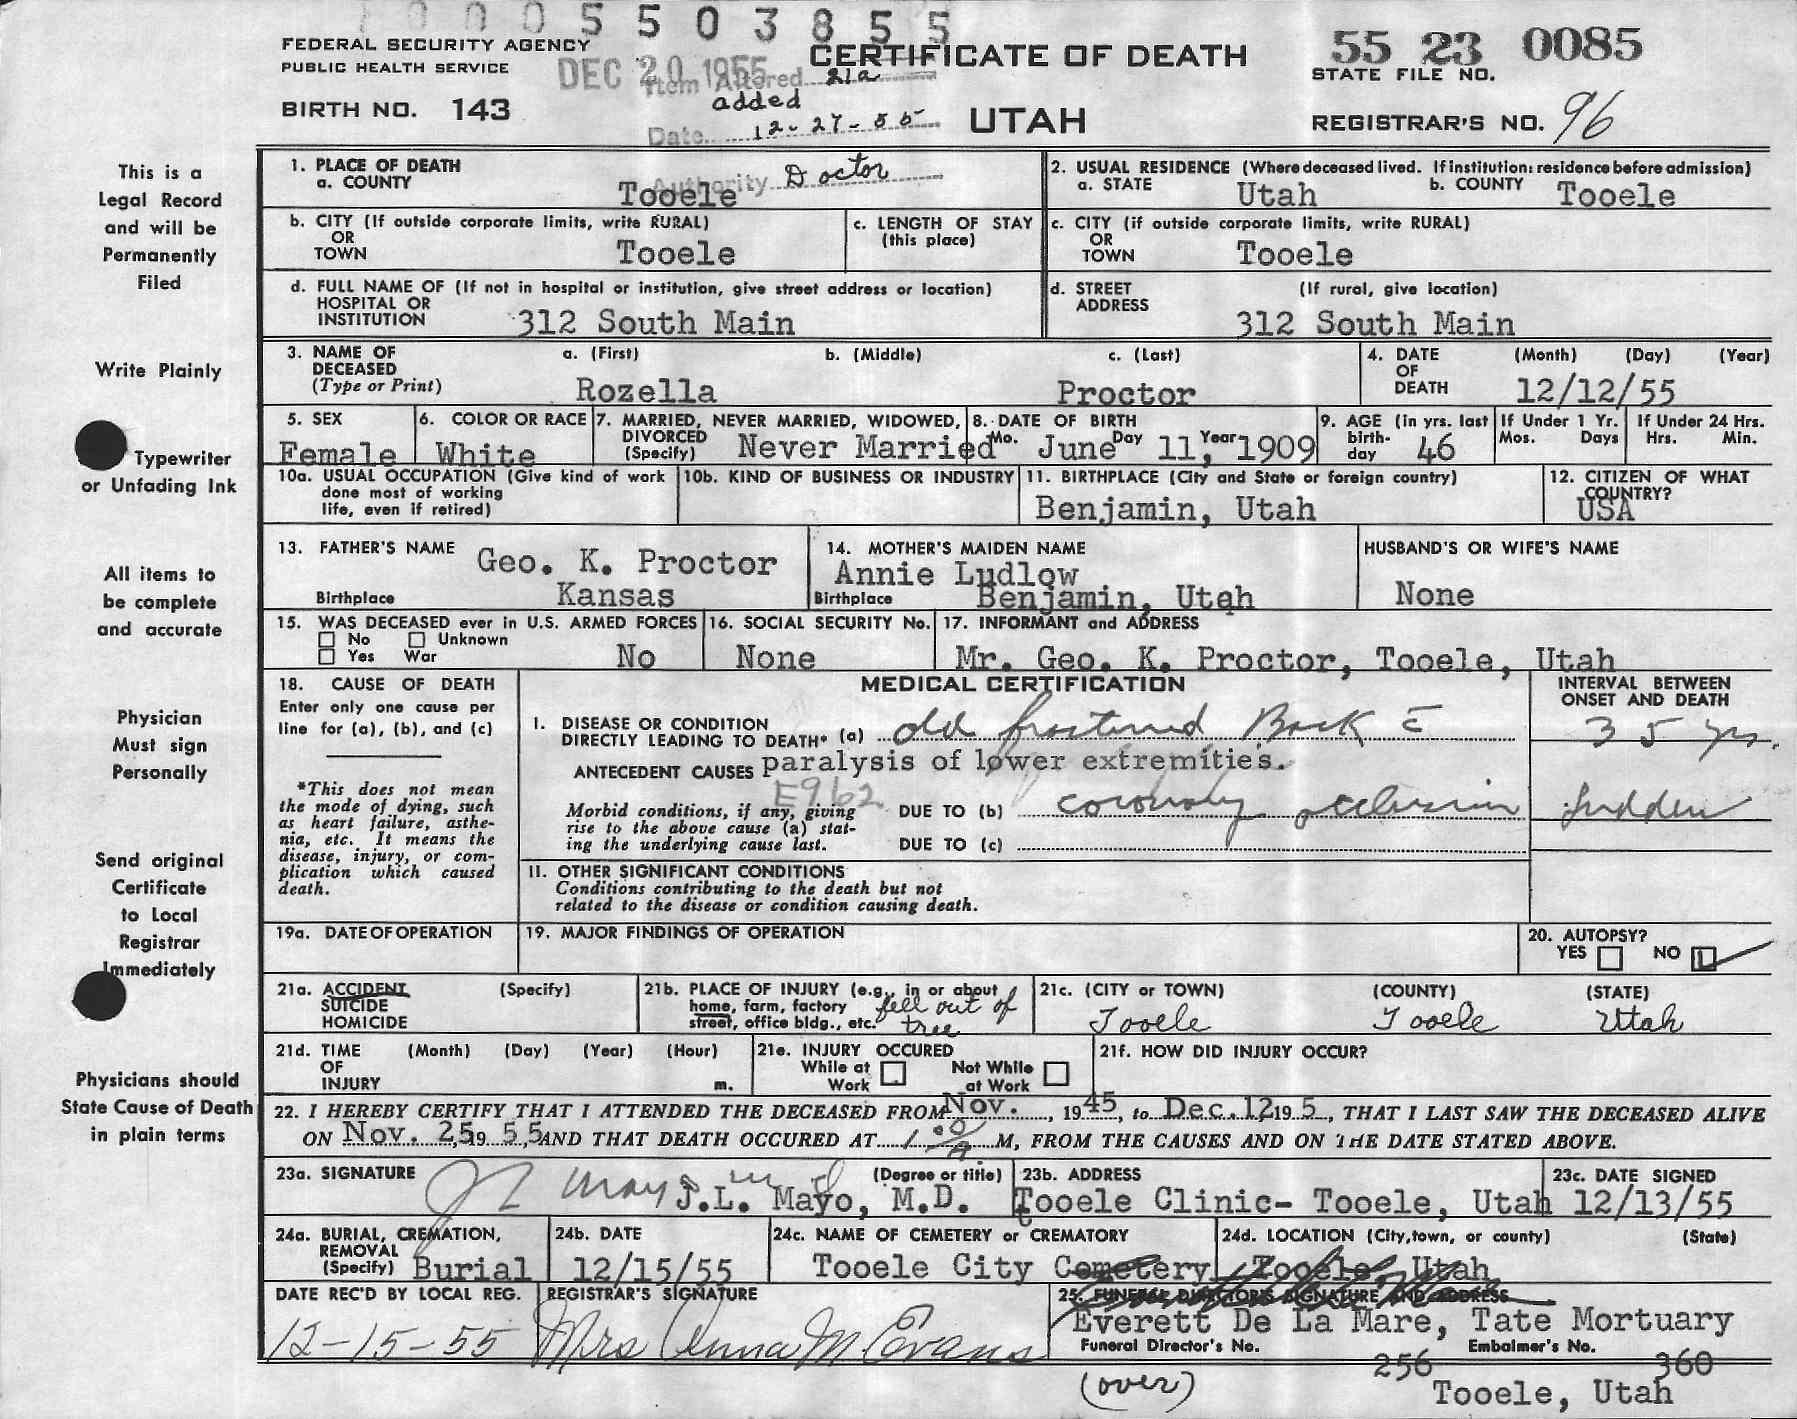 0005503855
FEDERAL SECURITY AGENCY
PUBLIC HEALTH SERVICE
BIRTH NO. 143
DEC 20 1955
Item Altered 21a
added
Date 12-27-55
Authority Doctor
CERTIFICATE OF DEATH
UTAH
55 23 0085
STATE FILE NO.
REGISTRAR'S NO. 96
This is a
Legal Record
and will be
Permanently
Filed
Write Plainly
Typewriter
or Unfading Ink
All items to
be complete
and accurate
Physician
Must sign
Personally
Send original
Certificate
to Local
Registrar
Immediately
Physicians should
State Cause of Death
in plain terms
1. PLACE OF DEATH
a. COUNTY Tooele
2. USUAL RESIDENCE (Where deceased lived. If institution: residence before admission)
a. STATE Utah b. COUNTY Tooele
b. CITY (If outside corporate limits, write RURAL)
OR
TOWN Tooele
c. LENGTH OF STAY
(this place)
c. CITY (if outside corporate limits, write RURAL)
OR
TOWN Tooele
d. FULL NAME OF (If not in hospital or institution, give street address or location)
HOSPITAL OR
INSTITUTION 312 South Main
d. STREET (If rural, give location)
ADDRESS
312 South Main
3. NAME OF a. (First) b. (Middle) c. (Last)
DECEASED
(Type or Print) Rozella Proctor
4. DATE (Month) (Day) (Year)
OF
DEATH 12/12/55
5. SEX
Female
6. COLOR OR RACE
White
7. MARRIED, NEVER MARRIED, WIDOWED,
DIVORCED
(Specify) Never Married
8. DATE OF BIRTH
Mo. June Day 11, Year 1909
9. AGE (in yrs. last
birth-
day 46
If Under 1 Yr.
Mos. Days
If Under 24 Hrs.
Hrs. Min.
10a. USUAL OCCUPATION (Give kind of work
done most of working
life, even if retired)
10b. KIND OF BUSINESS OR INDUSTRY
11. BIRTHPLACE (City and State or foreign country)
Benjamin, Utah
12. CITIZEN OF WHAT
COUNTRY?
USA
13. FATHER'S NAME Geo. K. Proctor
Birthplace Kansas
14. MOTHER'S MAIDEN NAME
Annie Ludlow
Birthplace Benjamin, Utah
HUSBAND'S OR WIFE'S NAME
None
15. WAS DECEASED ever in U.S. ARMED FORCES
No Unknown
Yes War No
16. SOCIAL SECURITY No.
None
17. INFORMANT and ADDRESS
Mr. Geo. K. Proctor, Tooele, Utah
18. CAUSE OF DEATH
Enter only one cause per
line for (a), (b), and (c)
*This does not mean
the mode of dying, such
as heart failure, asthe-
nia, etc. It means the
disease, injury, or com-
plication which caused
death.
MEDICAL CERTIFICATION
INTERVAL BETWEEN
ONSET AND DEATH
I. DISEASE OR CONDITION
DIRECTLY LEADING TO DEATH* (a) old fractured Back c̄
35 yrs.
ANTECEDENT CAUSES paralysis of lower extremities.
E962
Morbid conditions, if any, giving
rise to the above cause (a) stat-
ing the underlying cause last.
DUE TO (b) coronary occlusion
Sudden
DUE TO (c)
II. OTHER SIGNIFICANT CONDITIONS
Conditions contributing to the death but not
related to the disease or condition causing death.
19a. DATE OF OPERATION
19. MAJOR FINDINGS OF OPERATION
20. AUTOPSY?
YES NO
21a. ACCIDENT (Specify)
SUICIDE
HOMICIDE
21b. PLACE OF INJURY (e.g., in or about
home, farm, factory
street, office bldg., etc.
fell out of
tree
21c. (CITY or TOWN) (COUNTY) (STATE)
Tooele Tooele Utah
21d. TIME (Month) (Day) (Year) (Hour)
OF
INJURY m.
21e. INJURY OCCURED
While at Not While
Work at Work
21f. HOW DID INJURY OCCUR?
22. I HEREBY CERTIFY THAT I ATTENDED THE DECEASED FROM Nov. , 1945, to Dec. 12 195 , THAT I LAST SAW THE DECEASED ALIVE
ON Nov. 25, 195 5, AND THAT DEATH OCCURED AT 1:00 A M, FROM THE CAUSES AND ON THE DATE STATED ABOVE.
23a. SIGNATURE (Degree or title)
J L Mayo M D J.L. Mayo, M.D.
23b. ADDRESS
Tooele Clinic- Tooele, Utah
23c. DATE SIGNED
12/13/55
24a. BURIAL, CREMATION,
REMOVAL
(Specify) Burial
24b. DATE
12/15/55
24c. NAME OF CEMETERY or CREMATORY
Tooele City Cemetery
24d. LOCATION (City, town, or county) (State)
Tooele, Utah
DATE REC'D BY LOCAL REG.
12-15-55
REGISTRAR'S SIGNATURE
Mrs Anna M. Evans
25. FUNERAL DIRECTOR'S SIGNATURE AND ADDRESS
Everett De La Mare, Tate Mortuary
Funeral Director's No. Embalmer's No.
256 360
(over)
Tooele, Utah